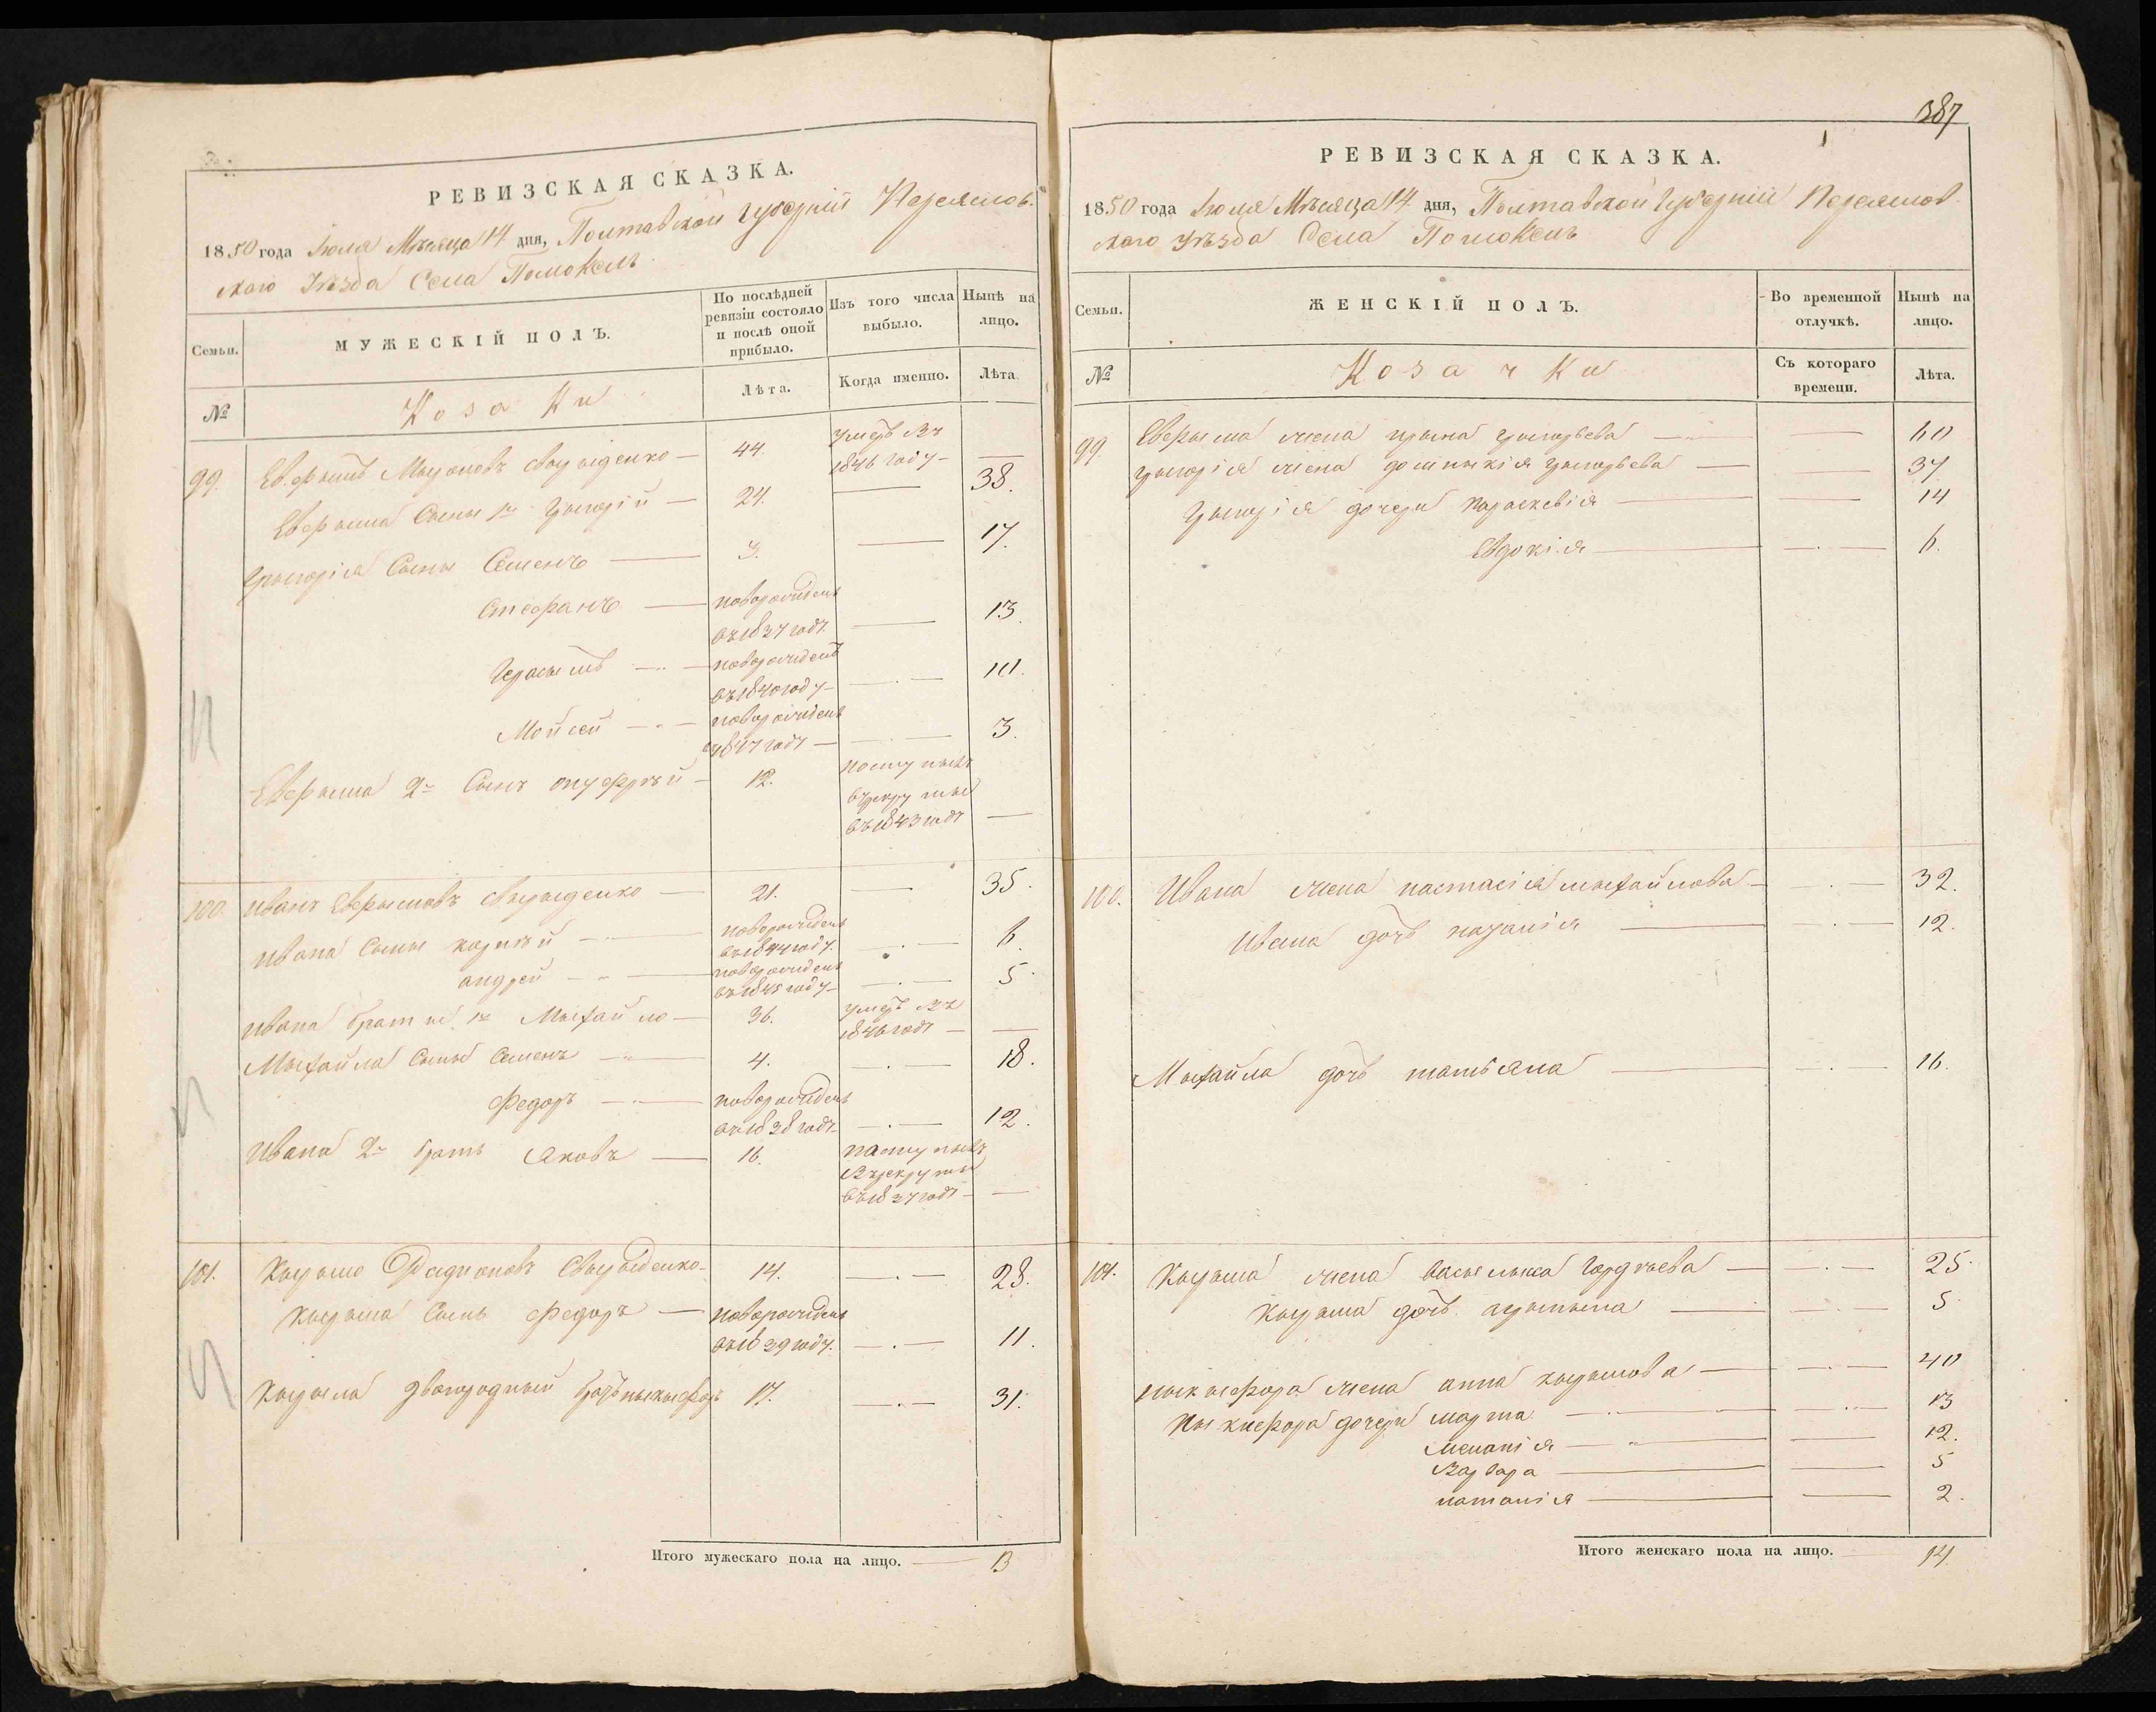 РЕВИЗСКАЯ СКАЗКА.
1850 года Июля Мѣсяца 14 дня, Полтавской Губерніи Переяслов-
скаго Уѣзда Села Помоклъ
Семьи. МУЖЕСКІЙ ПОЛЪ. По послѣдней ревизіи состояло и послѣ оной прибыло. Изъ того числа выбыло. Ныпѣ на лицо.
№ Козаки Лѣта. Когда именно. Лѣта
99. Ефрымъ Мыроновъ Свырыденко — 44. умеръ въ 1846 году — —
Ефрыма Сыны 1й Грыгорій — 24. — 38.
Грыгорія Сыны Семенъ — 3. — 17.
Стефанъ — новорожденъ въ 1837 годѣ — 13.
Герасымъ — новорожденъ въ 1840 году — 10.
Мойсей — новорожденъ 1847 годѣ — 3.
Ефрыма 2й Сынъ Онуфрѣй — 12. поступылъ въ рекруты въ 1843 годѣ —
100. Иванъ Ефрымовъ Свырыденко — 21. — 35.
Ивана Сыны Корнѣй — новорожденъ въ 1844 году — 6.
Андрей — новорожденъ въ 1845 году — 5
Ивана братья 1й Мыхайло — 36. умеръ въ 1846 годѣ — —
Мыхайла Сыны Семенъ — 4. — 18.
Федоръ — новорожденъ въ 1838 годѣ — 12.
Ивана 2й братъ Яковъ — 16. поступылъ въ рекруты въ 1837 годѣ — —
101. Кырыло Радионовъ Свырыденко — 14. — 28.
Кырыла Сынъ Федоръ — новорожденъ въ 1839 году. — 11.
Кырыла двоюродный братъ Ныкыфоръ 17. — 31.
Итого мужескаго пола на лицо. — 13
387
РЕВИЗСКАЯ СКАЗКА.
1850 года Июля Мѣсяца 14 дня, Полтавской Губерніи Переяслов-
скаго Уѣзда Села Помоклъ
Семьи. ЖЕНСКІЙ ПОЛЪ. Во временной отлучкѣ. Ныпѣ на лицо.
№ Козачки Съ котораго времени. Лѣта.
99. Ефрыма жена Ирына Грыгорьева — — 60
Грыгорія жена Домныкія Грыгорьева — — 37
Грыгорія дочери Параскевія — — 14
Евдокія — — 6.
100. Ивана жена Настасія Мыхайлова — — 32.
Ивана дочь — — 12.
Мыхайла дочь Татьяна — — 16.
101. Кырыла жена Васылыса Гордѣева — — 25.
Кырыла дочь — — 5
Ныкыфора жена Анна Кырылова — — 40
Ныкыфора дочери Марта — — 13
Меланія — — 12.
Варвара — — 5
Наталія — — 2.
Итого женскаго пола на лицо. — 14.